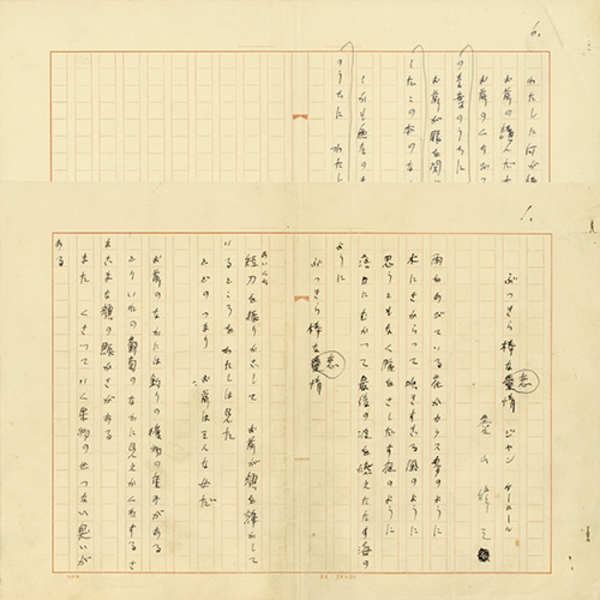 6.
わたしに何が
お前の読んだ
お前のくちびつ
のうちに
お前が眼を閉
したこの本のな
しかも
のうちに わたし
1.
ぶっきら棒な愛恋情 ジャン ケーロール
雨をあびている花かガラス のように
木にさからって吹きすさぶ風のように
思うともなく腕をさしだす夜のように
落日にむかって最後の波を燃えたたす海の
ように
ぶっきら棒な愛恋情
あいくち
短刀を振りかざして お前が顔を輝かして
いるところを わたしは見た
とどのつまり お前は な女だ
お前のなかには釣りの獲物の重みがある
とりいれの葡萄のなかに見えかくれするさ
まざまな顔の賑かさがある
また くさっていく果物のせつない匂いが
ある